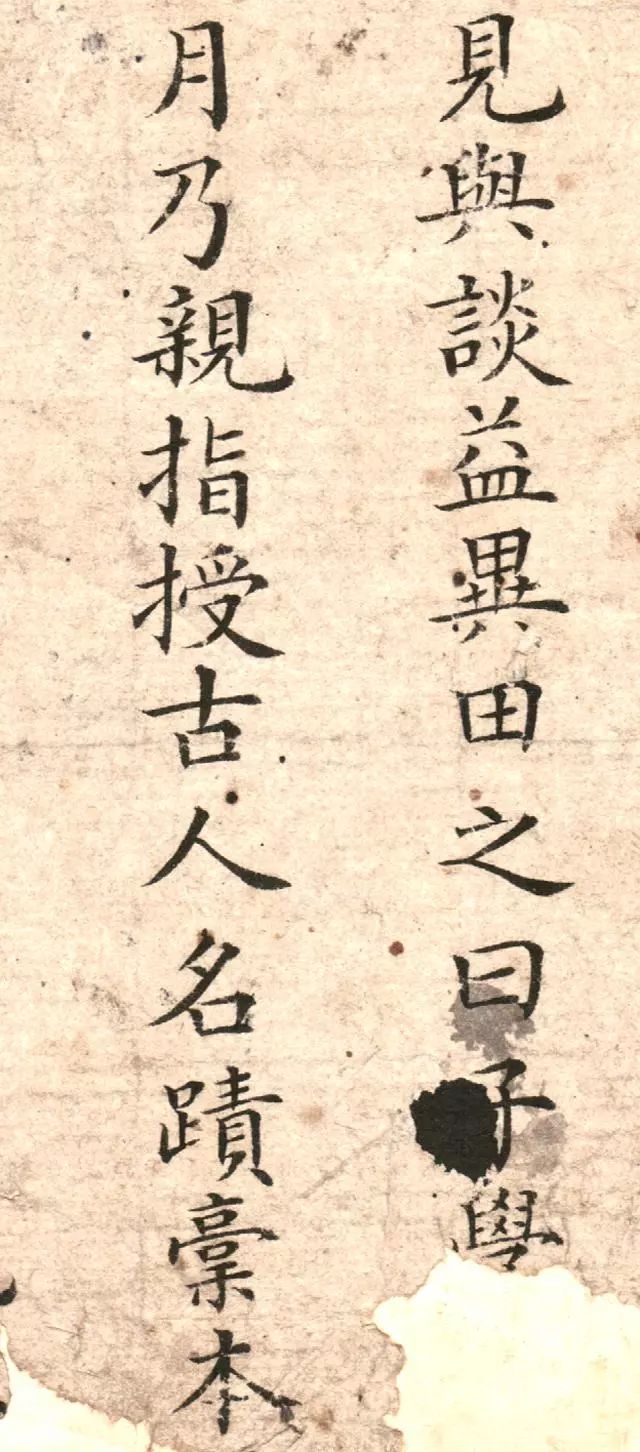 見與談益異田之曰子學
月乃親指授古人名蹟稾本